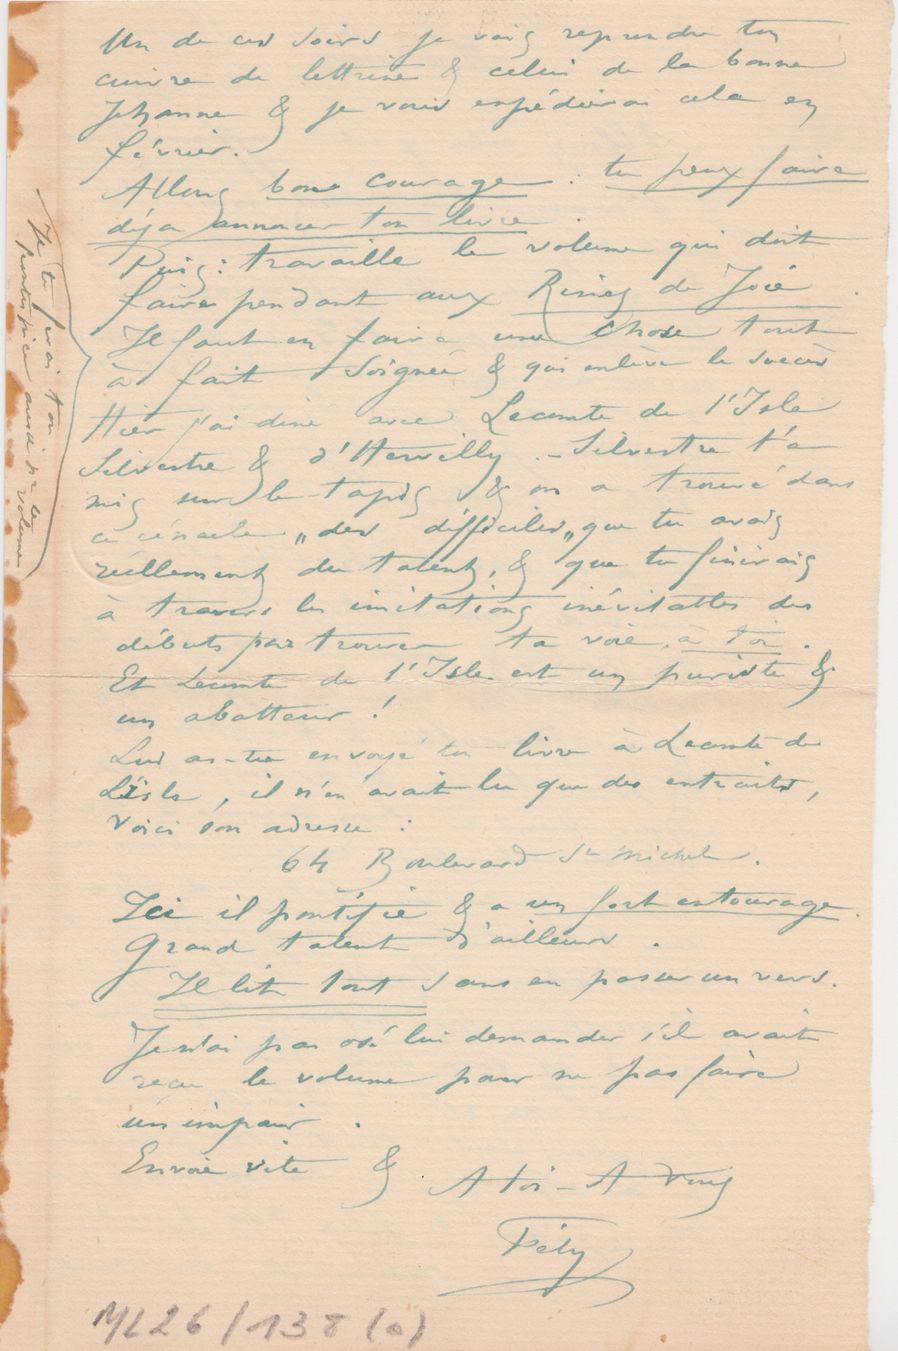 Un de ces soirs je vais reprendre ton
cuivre de lettrine & celui de la bonne
Jehanne & je vous expédierai cela en
février.
Allons bon courage : tu peux faire
déja annoncer ton livre.
Puis : travaille le volume qui doit
faire pendant aux Rimes de Joie.
Il faut en faire une chose tout
à fait soignée & qui enlève le succès
Hier j'ai diné avec Leconte de l'Isle
Silvestre & d'Hervilly. – Silvestre t'a
mis sur le tapis & on a trouvé dans
ce cénacle „des difficiles„ que tu avais
réellement du talent, & que tu finirais
à travers les imitations inévitables des
débuts par trouver ta voie, à toi.
Et Leconte de l'Isle est un puriste &
un abatteur !
Lui as-tu envoyé ton livre à Leconte de
L'isle, il n'en avait lu que des extraits,
voici son adresse :
64 Boulevard St Michel.
Ici il pontifie & a un fort entourage.
Grand talent d'ailleurs.
Il lit tout sans en passer un vers.
Je n'ai pas osé lui demander s'il avait
reçu le volume pour ne pas faire
un impair.
Envoie vite & A toi – A Vous
Fély
Je te ferai ton
frontispice aussi pr ce
volume
ML26/138 (a)